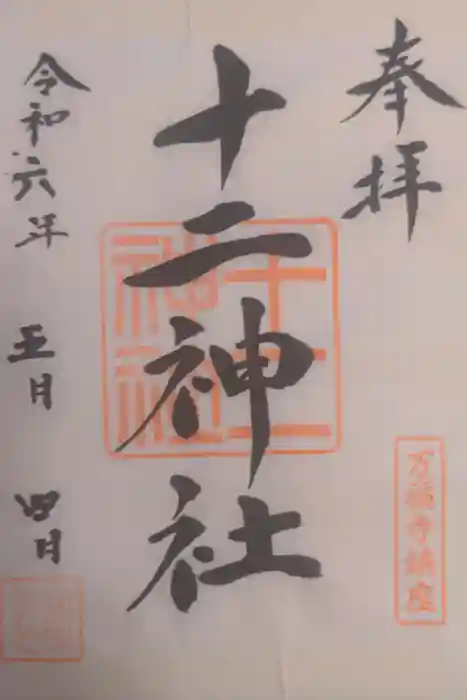 奉拝
十二神社
十二
神社
万福寺鎮座
令和六年 五月 四日